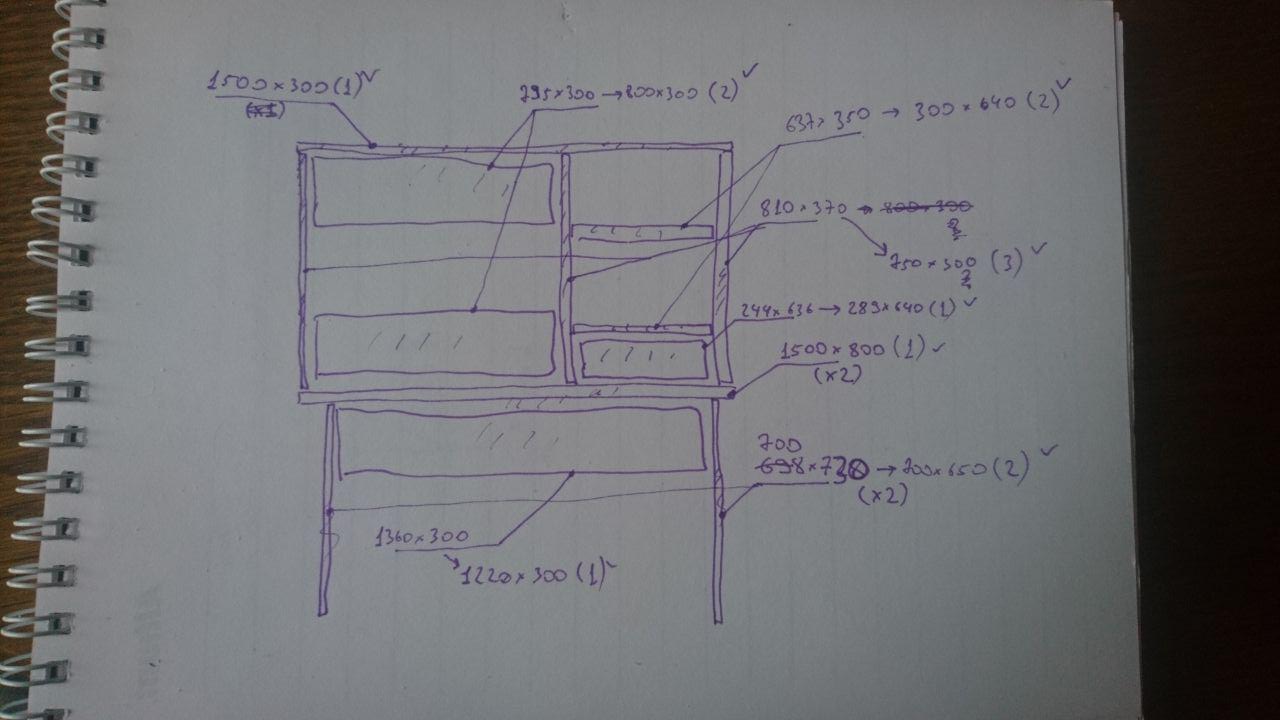 1500×300 (1) ✓
(×1)
795×300 → 800×300 (2) ✓
637×350 → 300×640 (2) ✓
810×370 → 800×300
750×300 (3) ✓
244×636 → 289×640 (1) ✓
1500×800 (1) ✓
(×2)
700
698×730 → 700×650 (2) ✓
(×2)
1360×300
→ 1220×300 (1) ✓